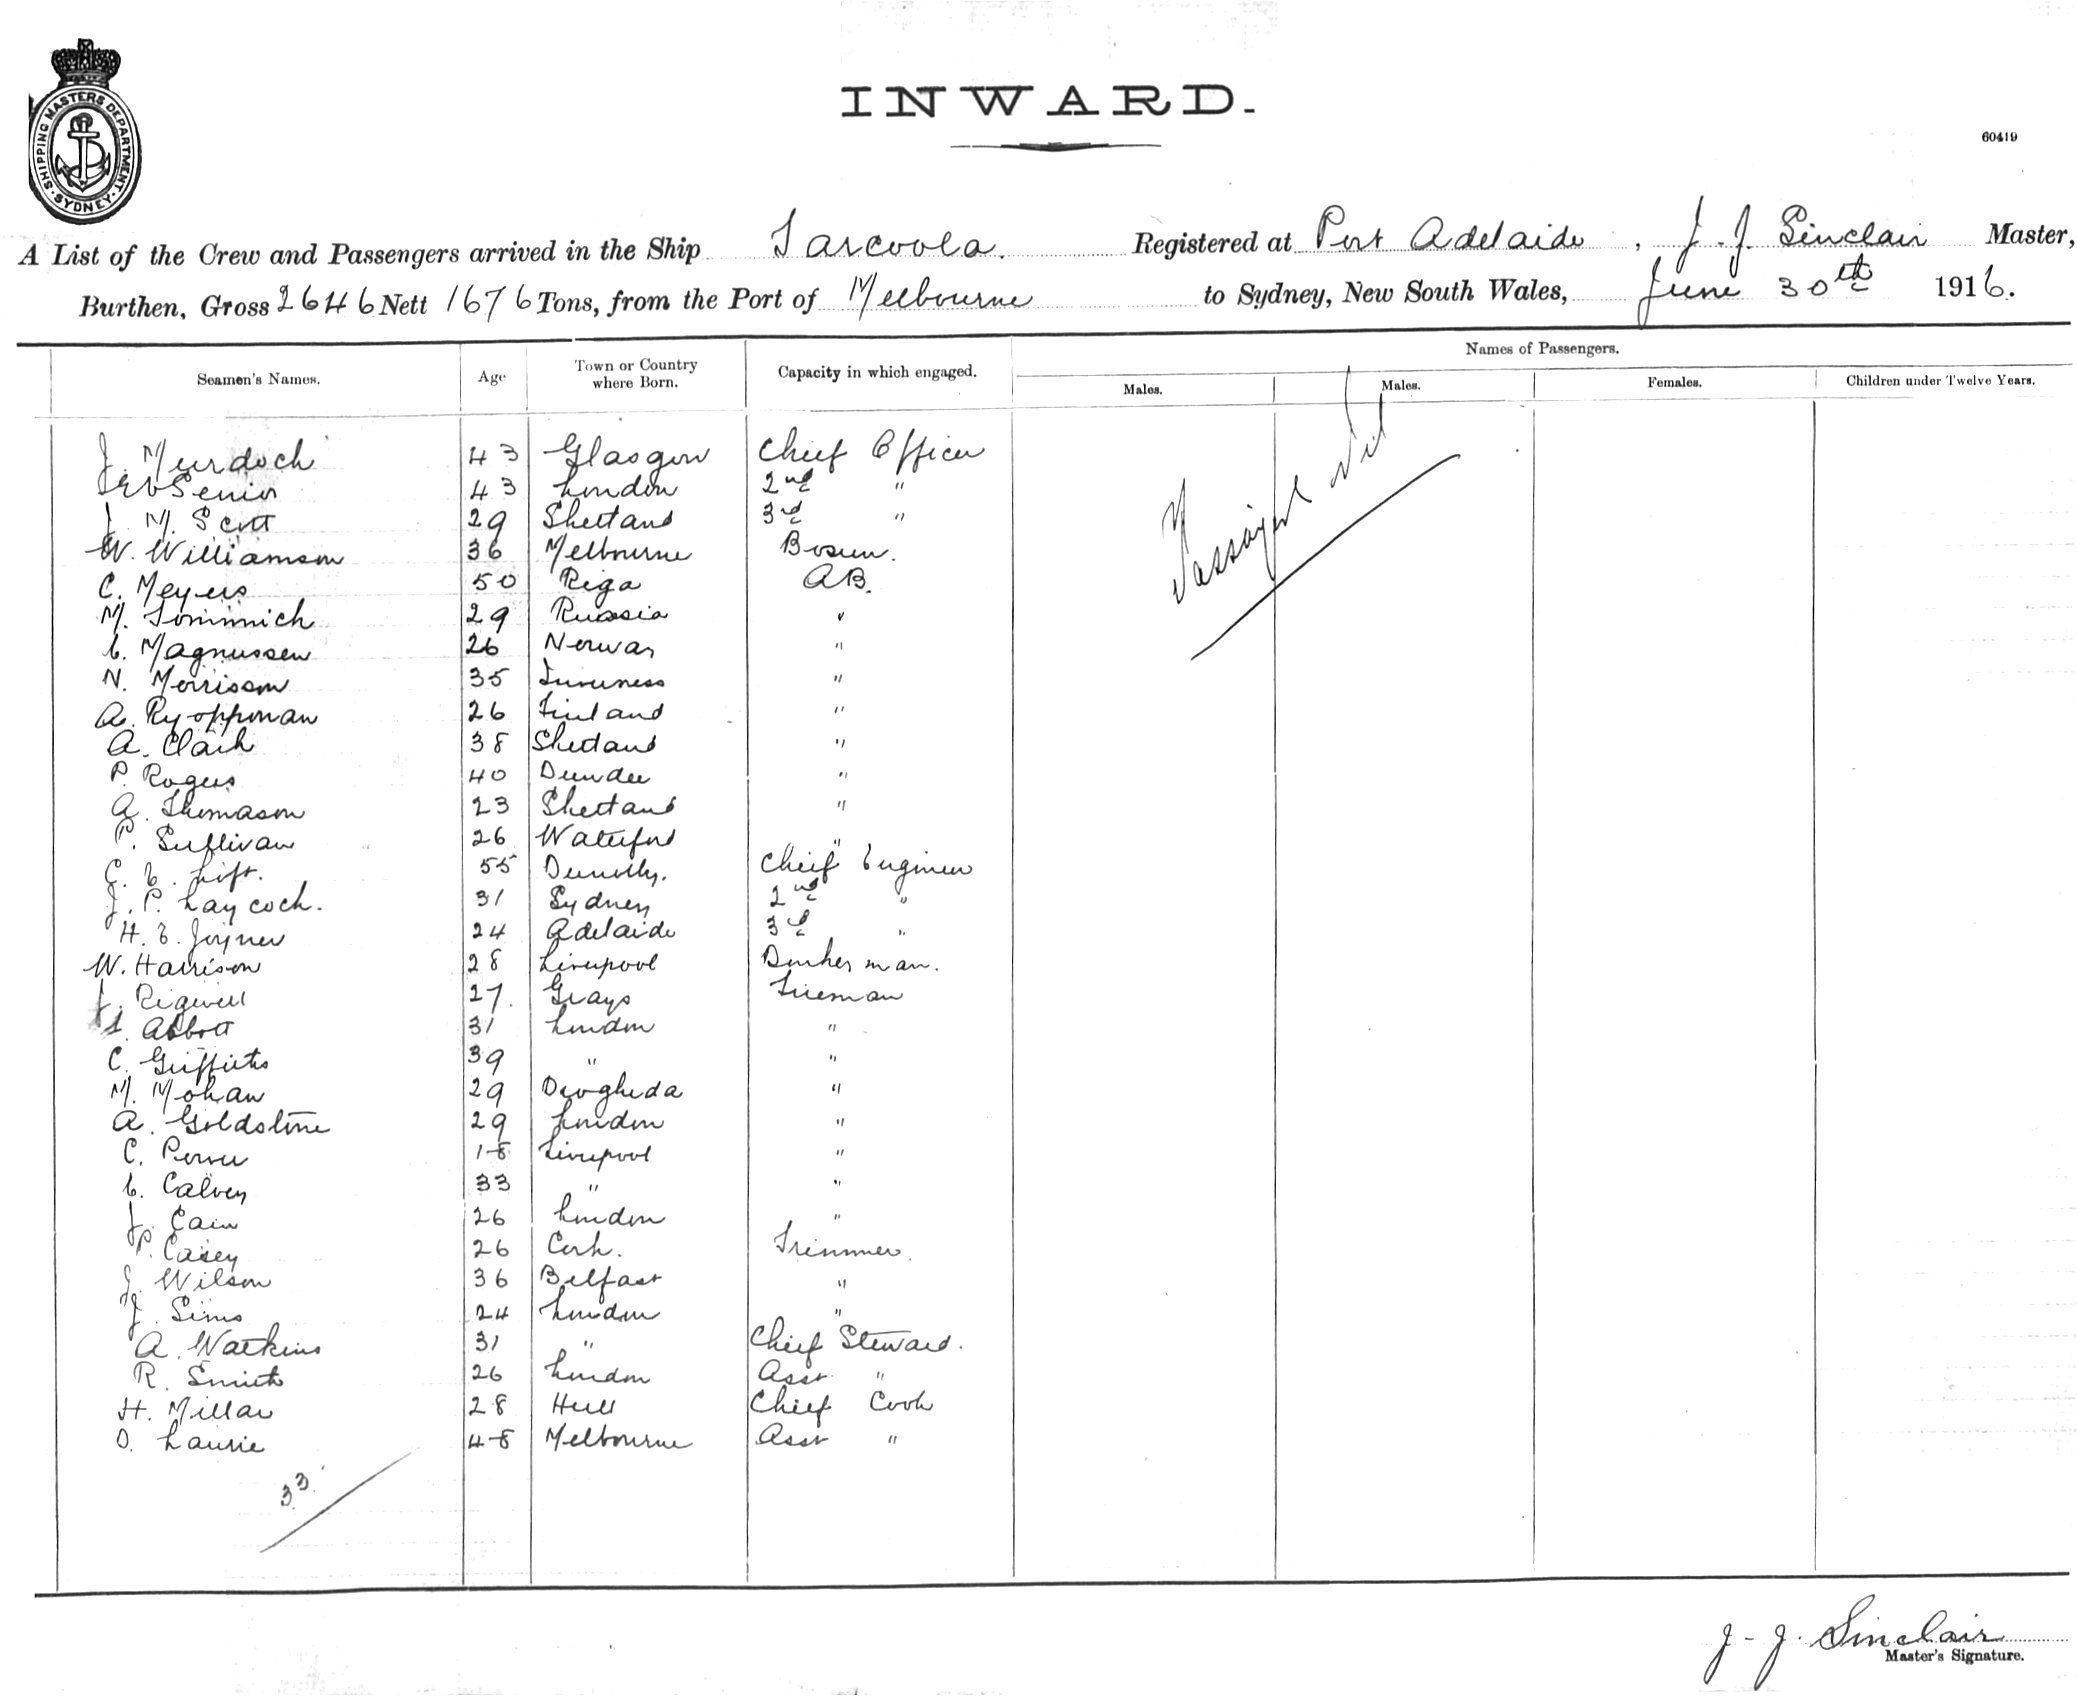 SHIPPING MASTERS DEPARTMENT. SYDNEY.
INWARD.
60419
A List of the Crew and Passengers arrived in the Ship Tarcoola. Registered at Port Adelaide, J. J. Sinclair Master,
Burthen, Gross 2646 Nett 1676 Tons, from the Port of Melbourne to Sydney, New South Wales, June 30th 1916.
Names of Passengers.
Seamen's Names. Age Town or Country where Born. Capacity in which engaged. Males. Males. Females. Children under Twelve Years.
Passengers Nil
J. Murdoch 43 Glasgow Chief Officer
Senior 43 London 2nd "
J. M. Scott 29 Shetland 3rd "
W. Williamson 36 Melbourne Bosun.
C. Meyers 50 Riga AB.
M. Tominich 29 Russia "
C. Magnussen 26 Norway "
N. Morrison 35 Inverness "
A. Ryopponan 26 Finland "
A. Clark 38 Shetland "
P. Rogers 40 Dundee "
A. Thomason 23 Shetland "
P. Sullivan 26 Waterford "
C. E. Lift. 55 Dunolly. Cheif Engineer
J. P. Laycock. 31 Sydney 2nd "
H. E. Joyner 24 Adelaide 3rd "
W. Harrison 28 Liverpool Dunkerman.
J. Rigwell 27. Grays Fireman
Abbott 31 London "
C. Griffiths 39 " "
M. Mohan 29 Drogheda "
A. Goldstone 29 London "
C. Power 18 Liverpool "
C. Calvey 33 " "
J. Cain 26 London "
P. Casey 26 Cork. Trimmer.
J. Wilson 36 Belfast "
J. Sims 24 London "
A. Watkins 31 " Chief Steward.
R. Smith 26 London Asst "
H. Millar 28 Hull Chief Cook
D. Laurie 48 Melbourne Asst "
33.
J. J. Sinclair
Master's Signature.